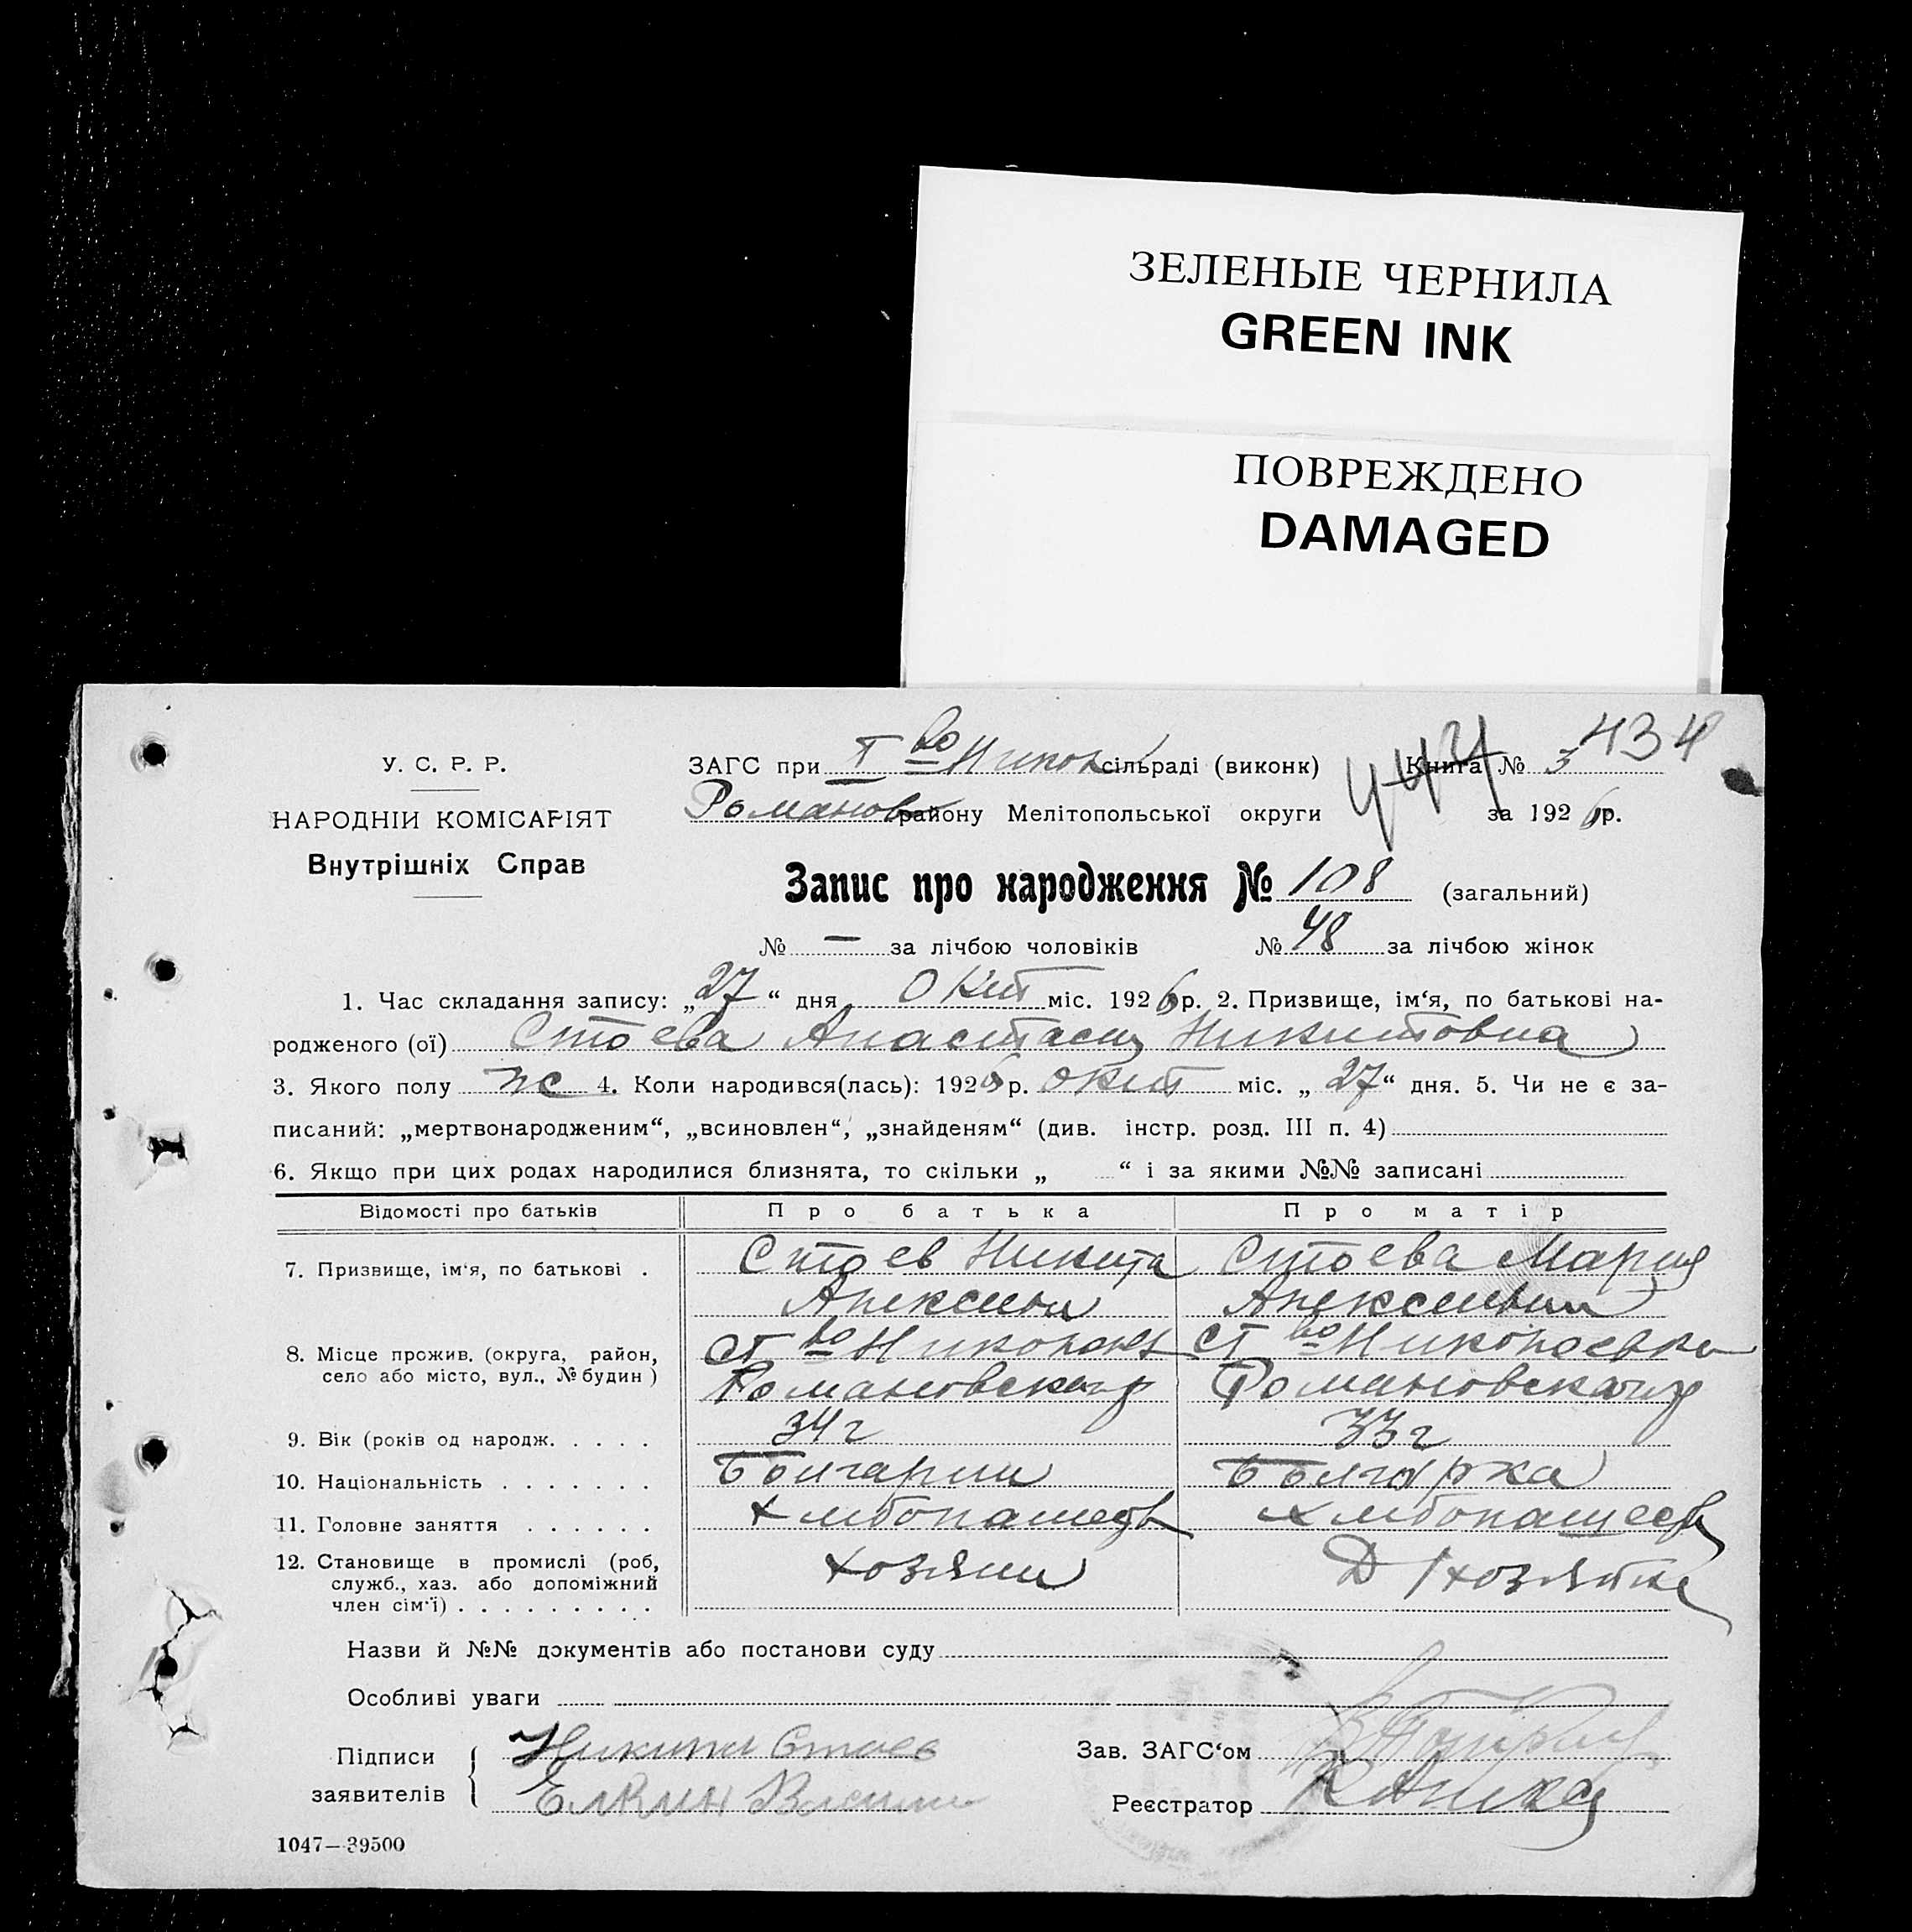 ЗЕЛЕНЫЕ ЧЕРНИЛА
GREEN INK
ПОВРЕЖДЕНО
DAMAGED
434
У. С. Р. Р.
НАРОДНІЙ КОМІСАРІЯТ
Внутрішніх Справ
ЗАГС при І во Никол сільраді (виконк) Книга № 3
Романов району Мелітопольської округи за 1926 р.
Запис про народження № 108 (загальний)
№ — за лічбою чоловіків № 48 за лічбою жінок
1. Час складання запису: „27“ дня Окт міс. 1926 р. 2. Призвище, ім‘я, по батькові на-
родженого (ої) Стоева Анастасия Никитовна
3. Якого полу ж 4. Коли народився(лась): 1926 р. окт міс. „27“ дня. 5. Чи не є за-
писаний: „мертвонародженим“, „всиновлен“, „знайденям“ (див. інстр. розд. III п. 4)
6. Якщо при цих родах народилися близнята, то скільки „ “ і за якими №№ записані
Відомості про батьків Про батька Про матір
7. Призвище, ім‘я, по батькові . Стоев Никита Стоева Мария
8. Місце прожив. (округа, район, село або місто, вул., № будин)
Романовска Романовска
9. Вік (років од народж. . . . . 34 г 33 г
10. Національність . . . . . . . Болгарин Болгарка
11. Головне заняття . . . . . . Хлибопашець Хлибопашеець
12. Становище в промислі (роб, служб., хаз. або допоміжний член сім‘ї) . . . . . . . . . хозяин Д/хозяйка
Назви й №№ документів або постанови суду
Особливі уваги
Підписи заявителів { Никита Стоев
Елкин
Зав. ЗАГС‘ом
Реєстратор
1047—39500